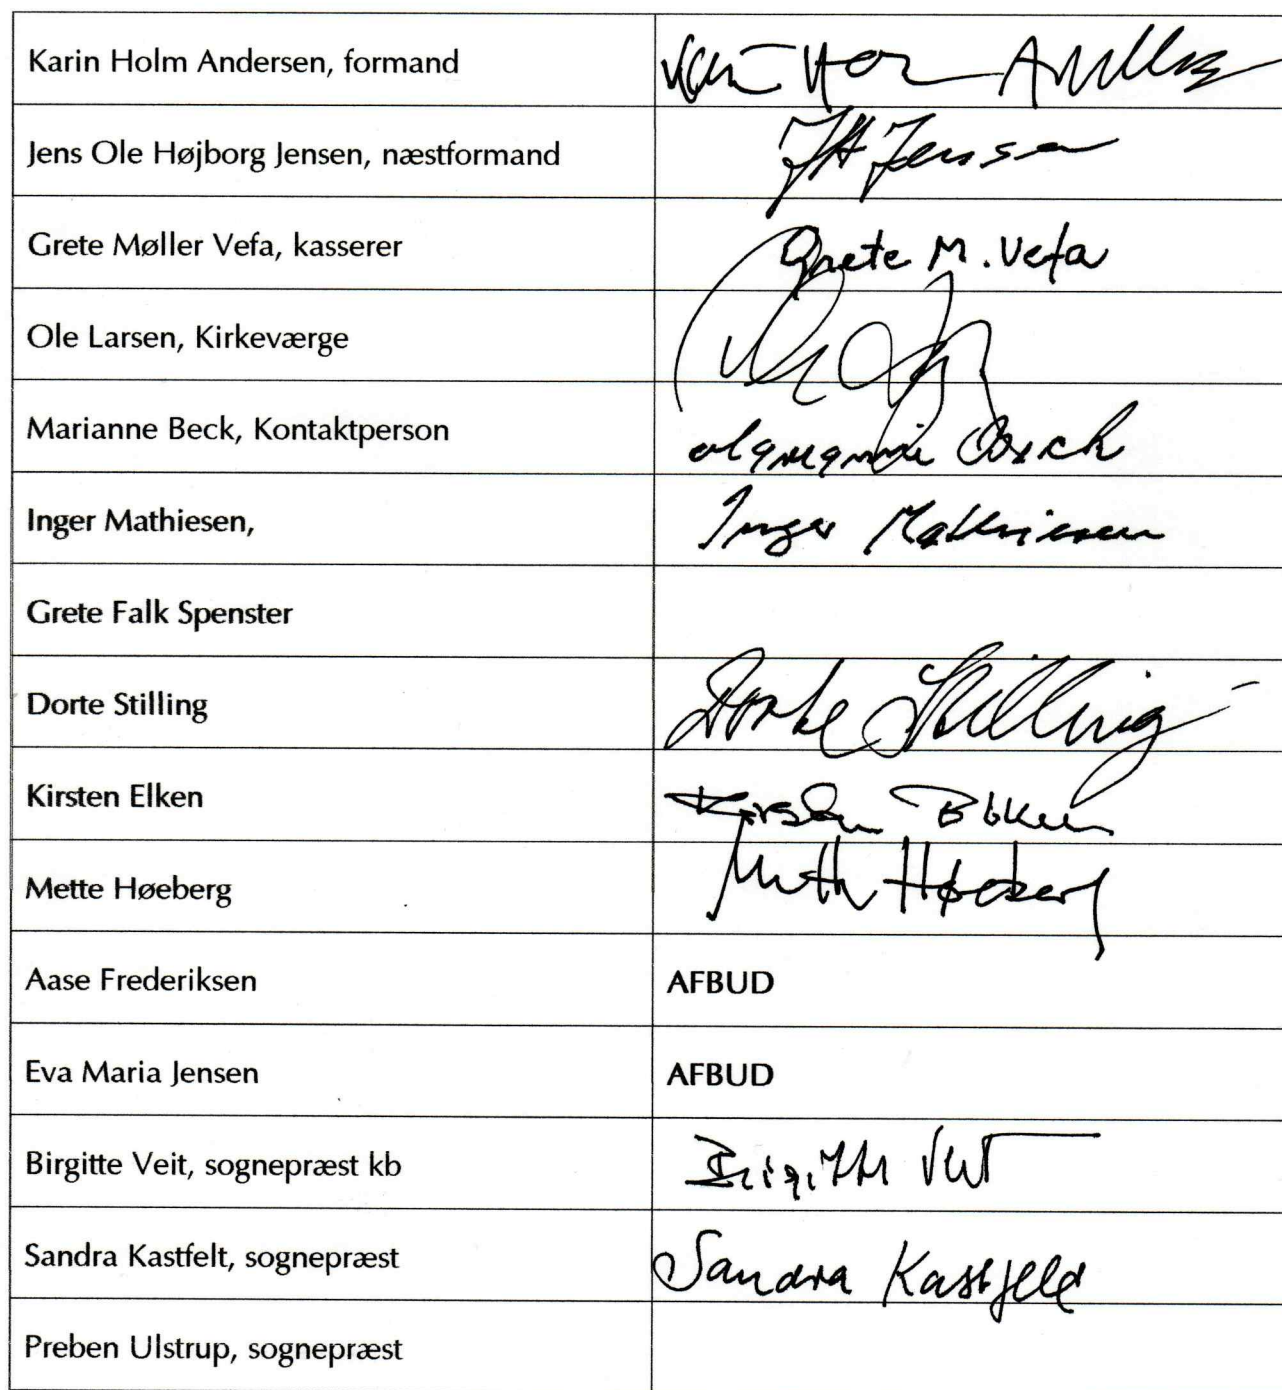 Karin Holm Andersen, formand
Jens Ole Højborg Jensen, næstformand JH Jensen
Grete Møller Vefa, kasserer Grete M. Vefa
Ole Larsen, Kirkeværge
Marianne Beck, Kontaktperson Marianne Beck
Inger Mathiesen, Inger Mathiesen
Grete Falk Spenster
Dorte Stilling Dorte Stilling
Kirsten Elken Kirsten Elken
Mette Høeberg Mette Høeberg
Aase Frederiksen AFBUD
Eva Maria Jensen AFBUD
Birgitte Veit, sognepræst kb Birgitte Veit
Sandra Kastfelt, sognepræst Sandra Kastfeld
Preben Ulstrup, sognepræst